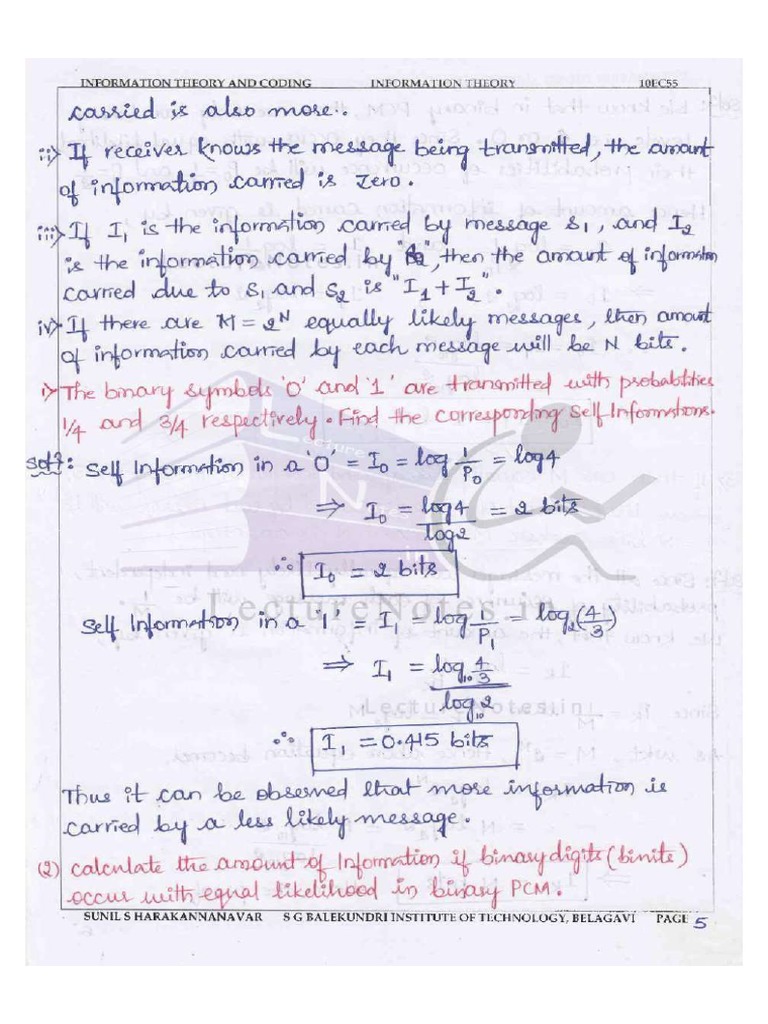 INFORMATION THEORY AND CODING INFORMATION THEORY 10EC55
carried is also more.
ii) If receiver knows the message being transmitted, the amount
of information carried is zero.
iii) If I₁ is the information carried by message s₁, and I₂
is the information carried by "s₂", then the amount of information
carried due to s₁ and s₂ is "I₁ + I₂".
iv) If there are M = 2ᴺ equally likely messages, then amount
of information carried by each message will be N bits.
1) The binary symbols '0' and '1' are transmitted with probabilities
1/4 and 3/4 respectively. Find the corresponding Self-Informations.
Solⁿ: Self Information in a '0' = I₀ = log 1/P₀ = log 4
⇒ I₀ = log 4 / log 2 = 2 bits
∴ I₀ = 2 bits
LectureNotes.in
Self Information in a '1' = I₁ = log 1/P₁ = log₂(4/3)
⇒ I₁ = log₁₀ 4/3 / log₁₀ 2
LectureNotes.in
∴ I₁ = 0.415 bits
Thus it can be observed that more information is
carried by a less likely message.
(2) calculate the amount of Information if binary digits (binite)
occur with equal likelihood in binary PCM.
SUNIL S HARAKANNANAVAR S G BALEKUNDRI INSTITUTE OF TECHNOLOGY, BELAGAVI PAGE 5